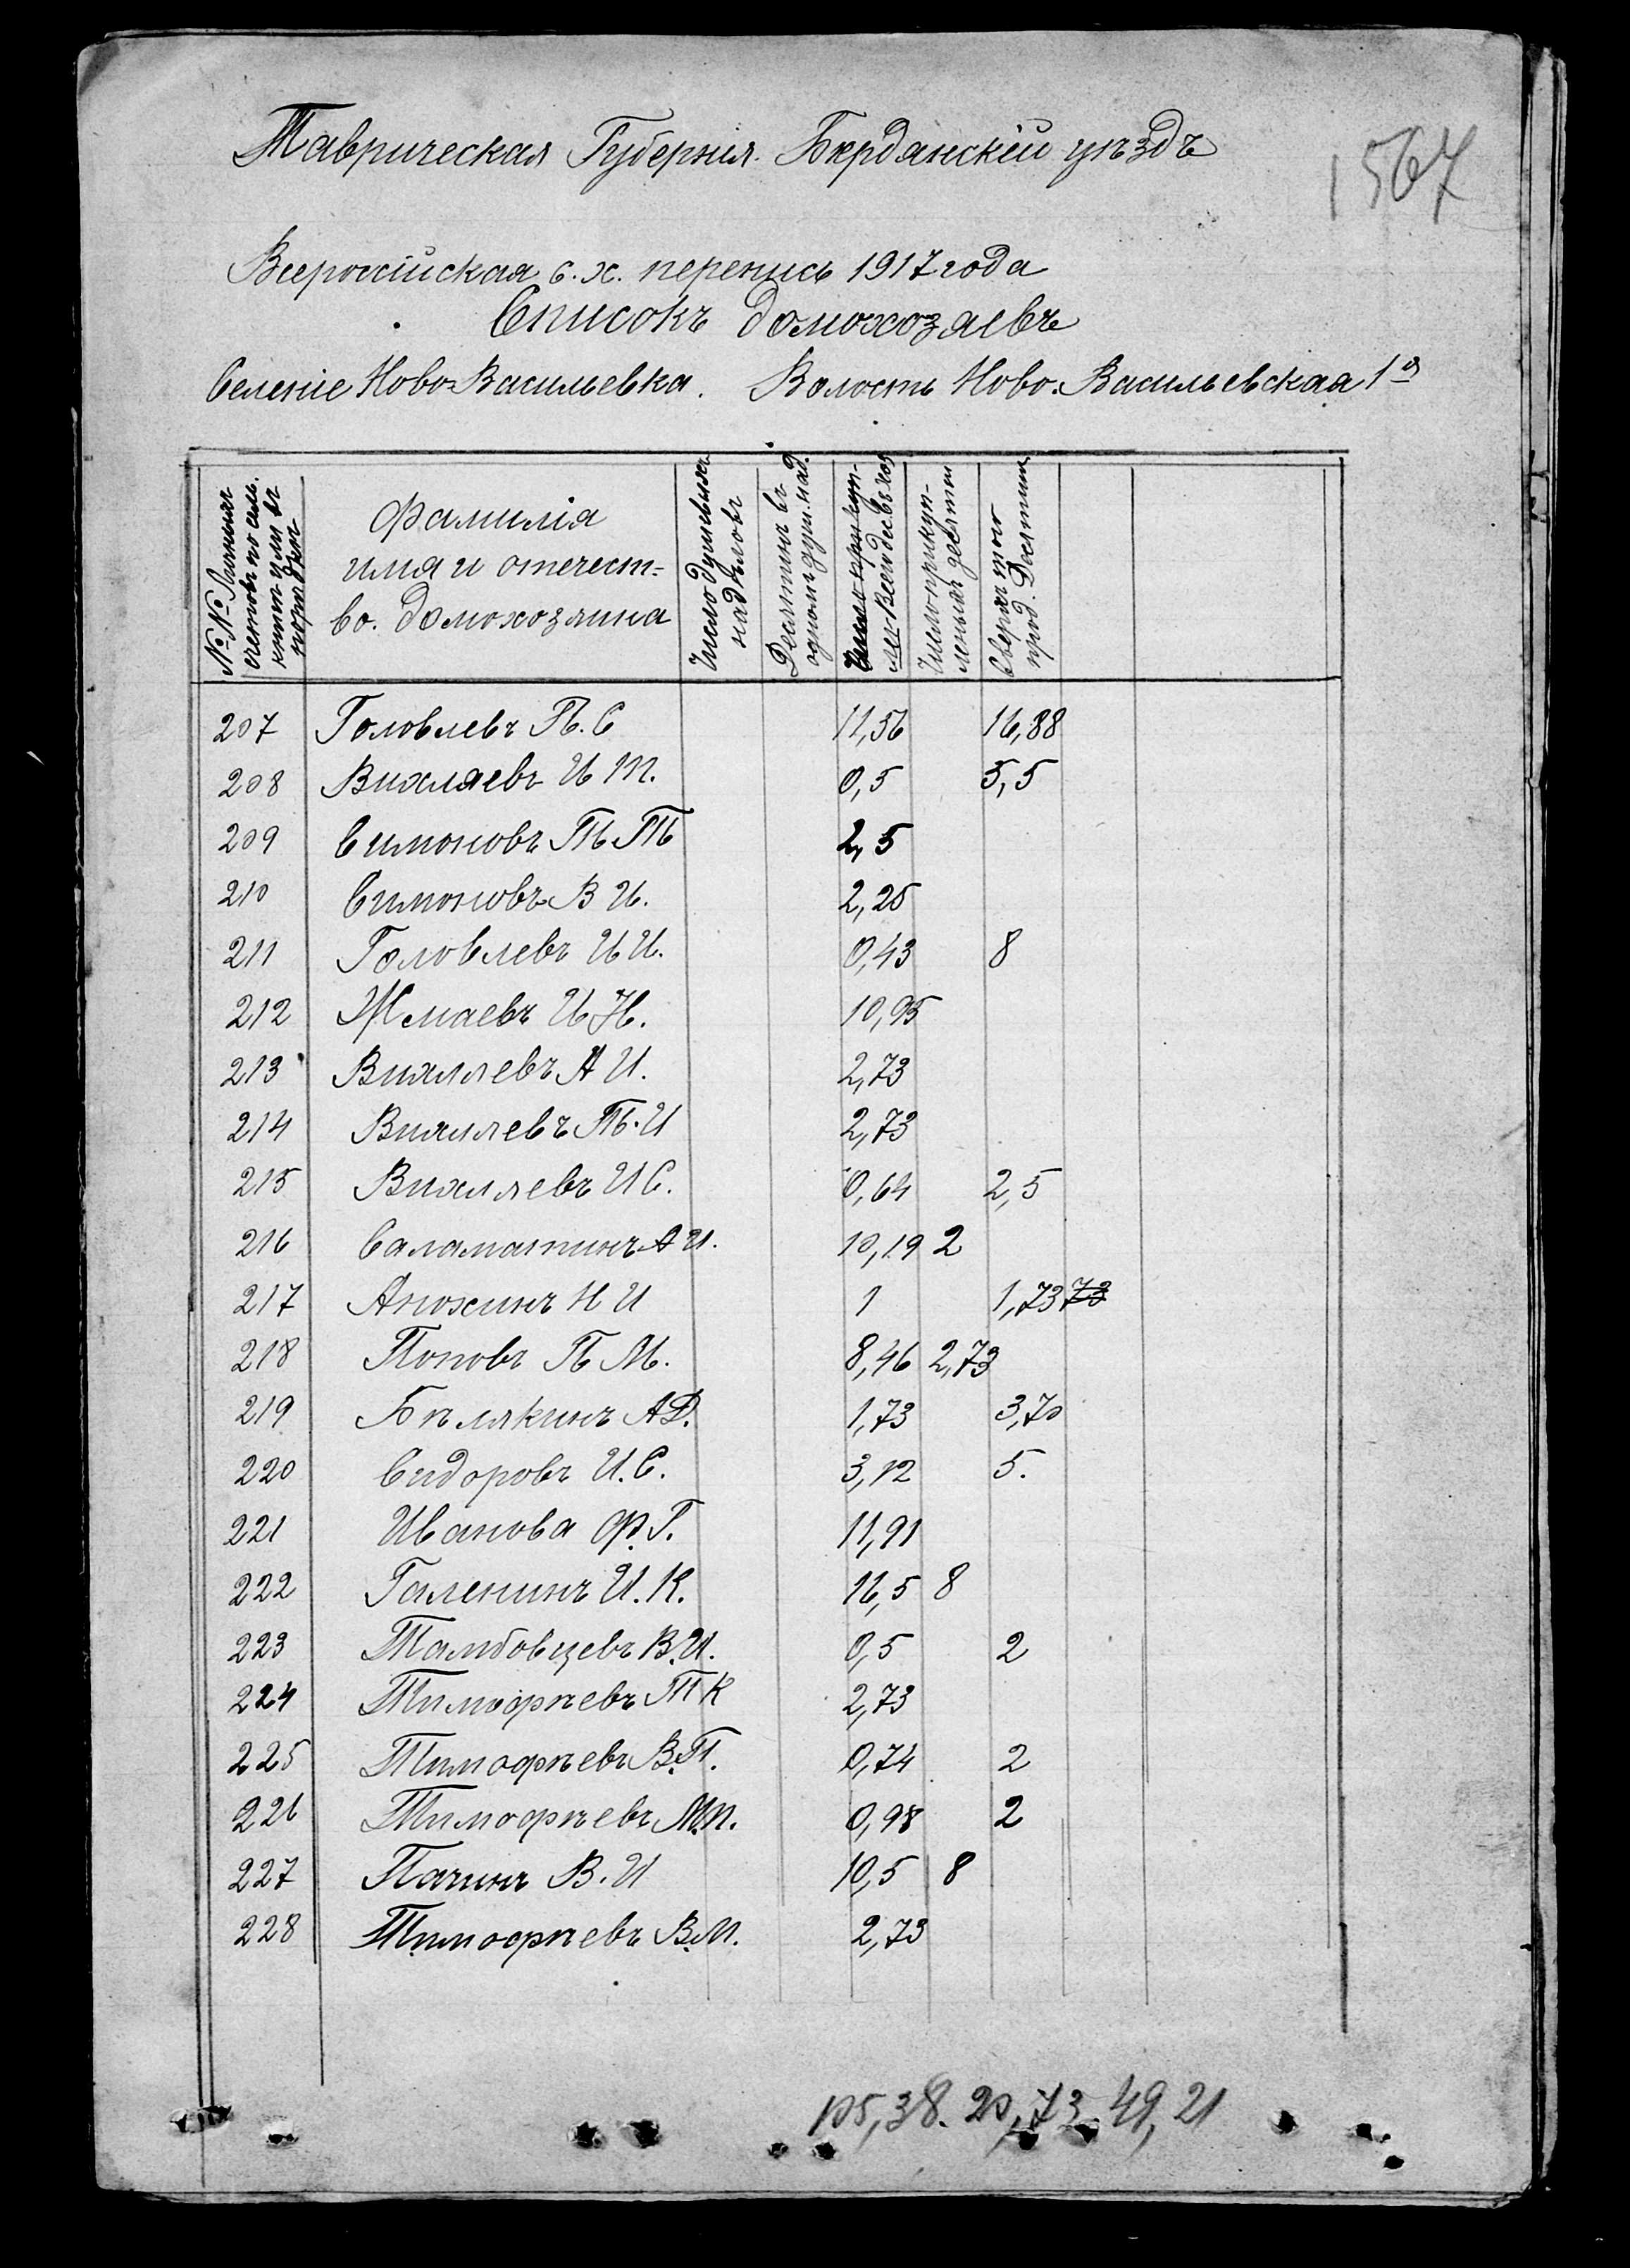 Таврическая Губернія. Бердянскій уѣздъ
1567
Всероссійская с. х. перепись 1917 года
Списокъ домохозяевъ
Селеніе Ново-Васильевка. Волость Ново-Васильевская 1я
№№
Фамилія
имя и отчест-
во. домохозяина
Число душевыхъ
надѣловъ
Десятинъ въ
одномъ душ. над.
Всей дес. въ
Число прикуп-
ленныхъ десятин
Сверхъ того
Десятинъ
207 Головлевъ П. С 11,56 16,88
208 Вихляевъ И М. 0,5 5,5
209 Симоновъ П П 2,5
210 Симоновъ В И. 2,25
211 Головлевъ И И. 0,43 8
212 Жмаевъ И Н. 10,95
213 Вихляевъ А И. 2,73
214 Вихляевъ П. И 2,73
215 Вихляевъ И С. 0,64 2,5
216 Саламатинъ А И. 10,19 2
217 Анохинъ Н И 1 1,73 73
218 Поповъ П М. 8,46 2,73
219 Бѣлякинъ А Д. 1,73 3,70
220 Сидоровъ И. С. 3,12 5.
221 Иванова Ф. Г. 11,91
222 Галенинъ И. К. 16,5 8
223 Тамбовцевъ В. И. 0,5 2
224 Тимофѣевъ П К 2,73
225 Тимофѣевъ В. П. 0,74 2
226 Тимофѣевъ М. П. 0,98 2
227 Пачинъ В. И 10,5 8
228 Тимофѣевъ В. М. 2,73
105,38. 20,73. 49,21